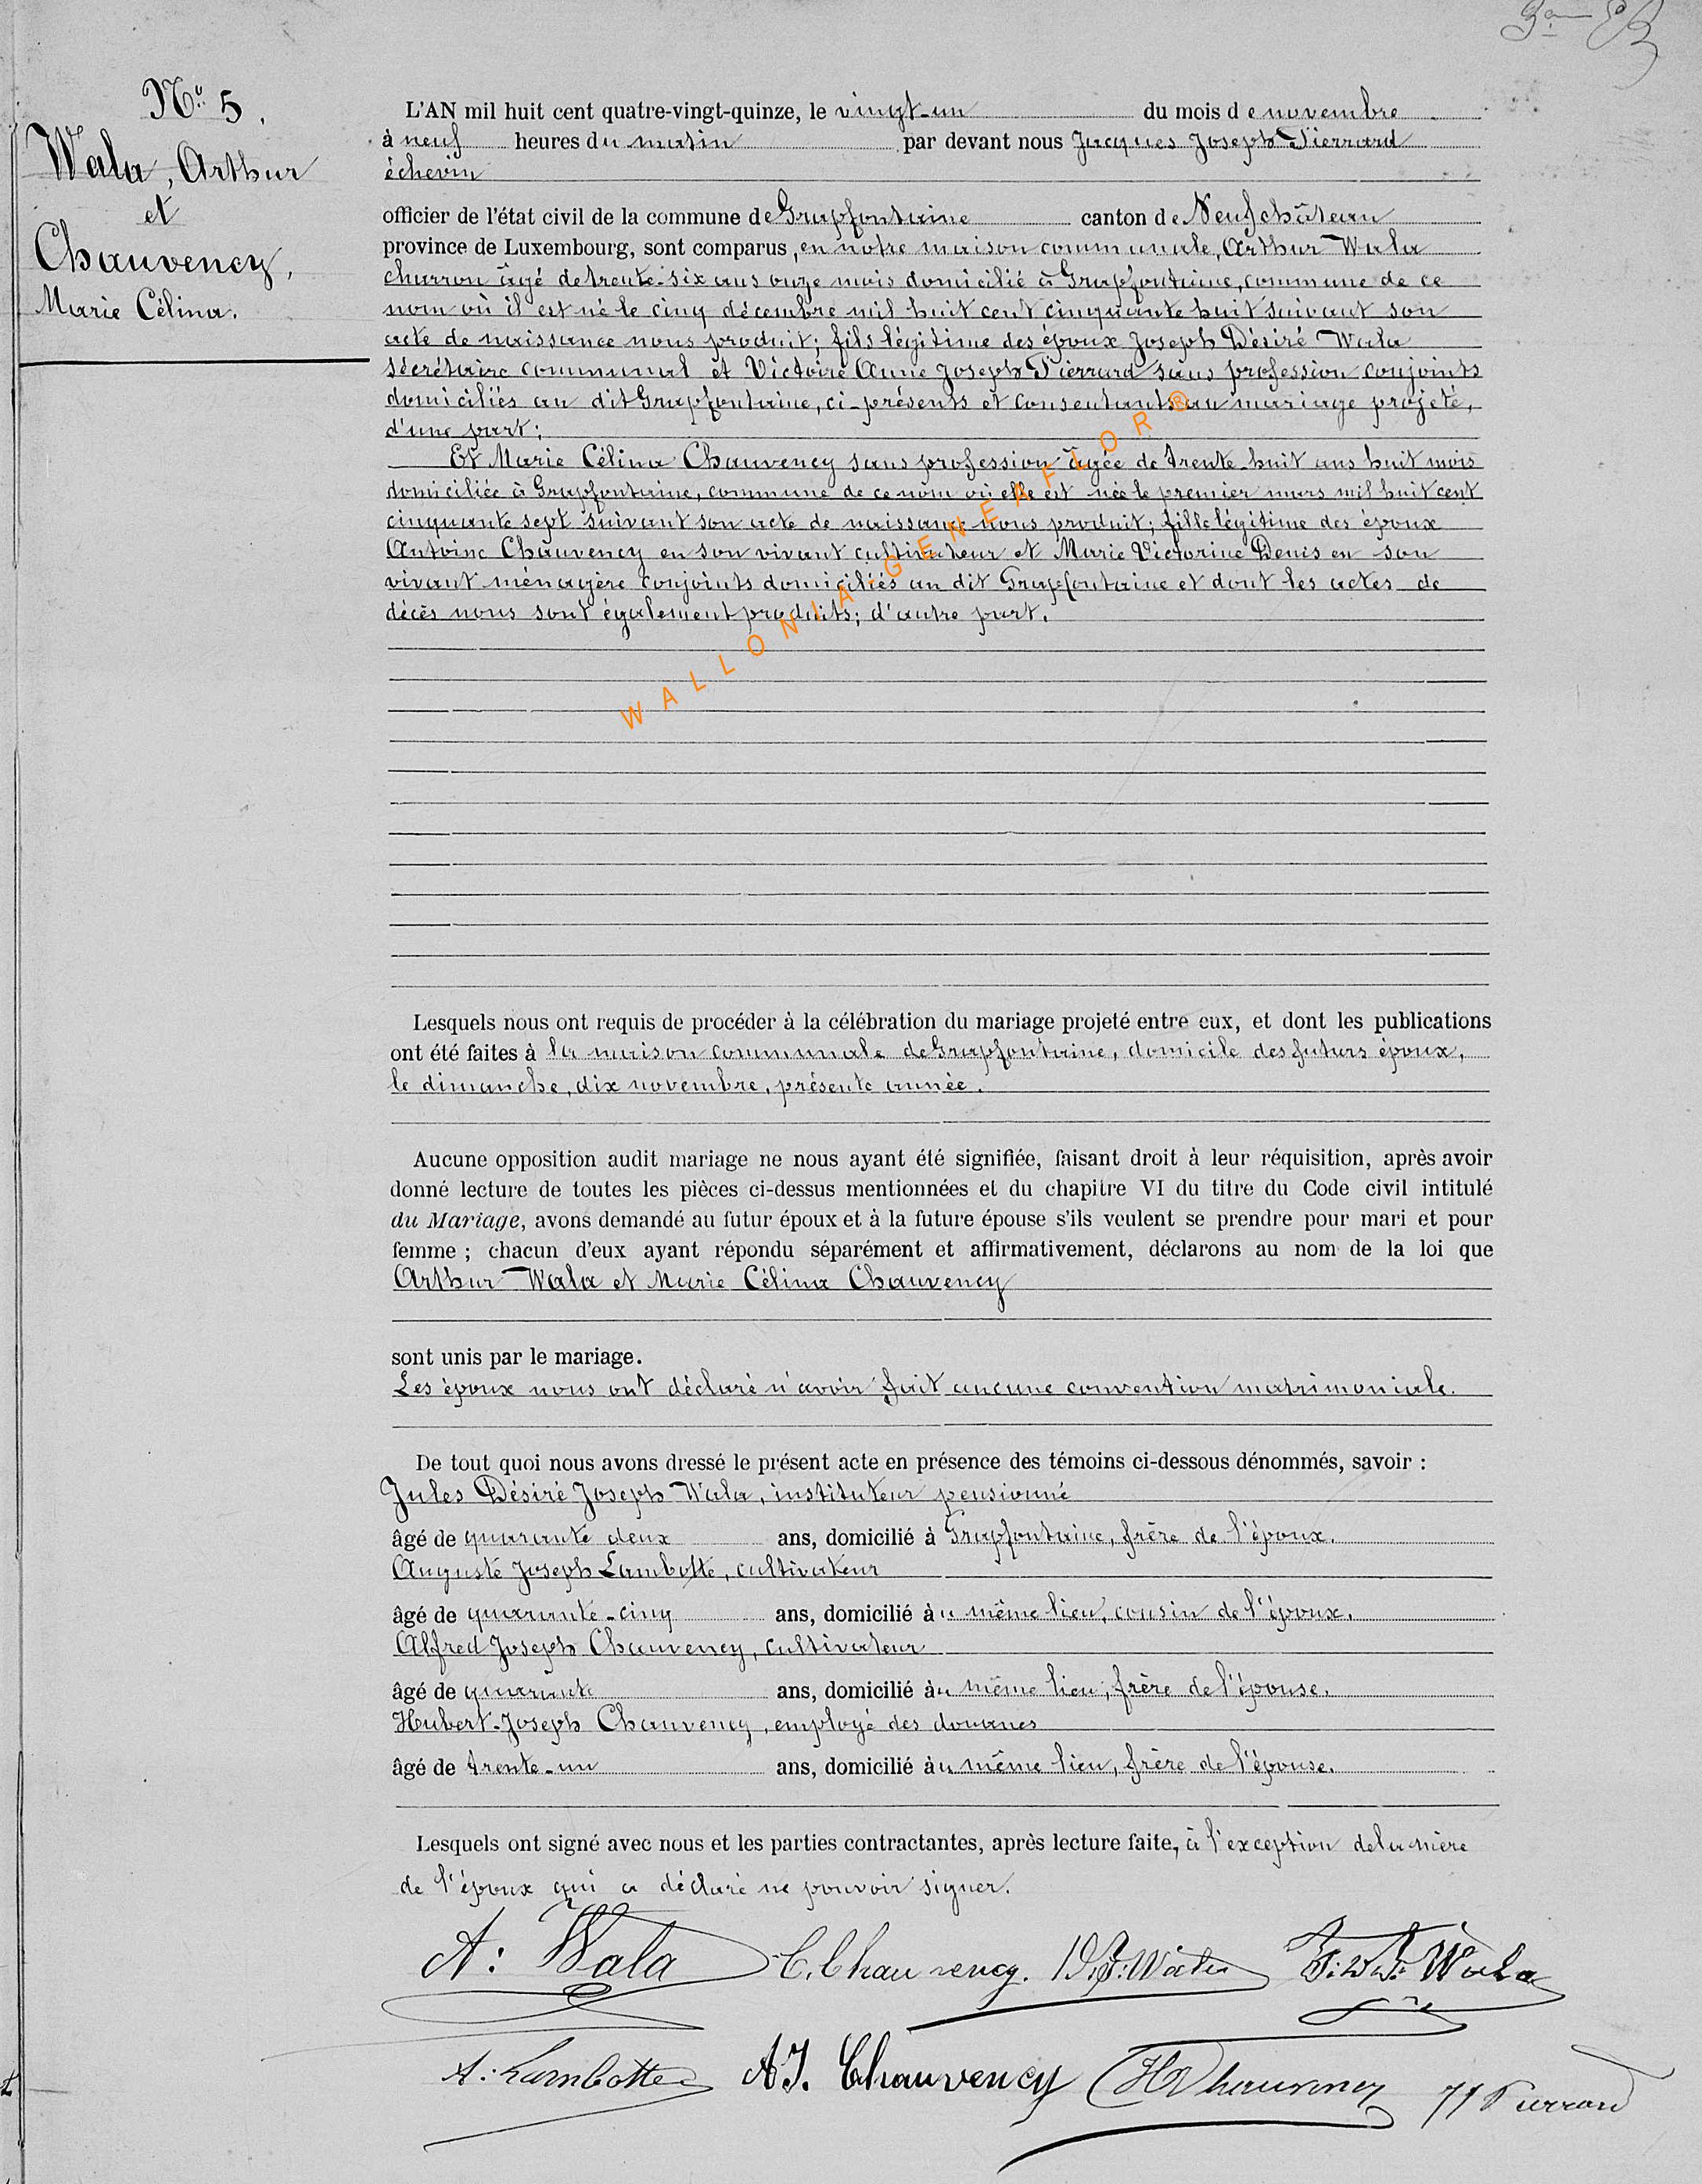 3em
Nº 5.
Wala, Arthur
et
Chauvency,
Marie Célina.
L'AN mil huit cent quatre-vingt-quinze, le vingt-un du mois de novembre
à neuf heures du matin par devant nous Jacques Joseph Pierrard
échevin
officier de l'état civil de la commune de Grapfontaine canton de Neufchâteau
province de Luxembourg, sont comparus, en notre maison communale, Arthur Wala
charron âgé de trente-six ans onze mois domicilié à Grapfontaine, commune de ce
nom où il est né le cinq décembre mil huit cent cinquante huit suivant son
acte de naissance nous produit; fils légitime des époux Joseph Désiré Wala
secrétaire communal et Victoire Anne Joseph Pierrard sans profession conjoints
domiciliés au dit Grapfontaine, ci-présents et consentants au mariage projeté,
d'une part;
Et Marie Célina Chauvency sans profession âgée de trente-huit ans huit mois
domiciliée à Grapfontaine, commune de ce nom où elle est née le premier mars mil huit cent
cinquante sept suivant son acte de naissance nous produit; fille légitime des époux
Antoine Chauvency en son vivant cultivateur et Marie Victorine Denis en son
vivant ménagère conjoints domiciliés au dit Grapfontaine et dont les actes de
décès nous sont également produits; d'autre part.
WALLONIA-GENEAFLOR ®
Lesquels nous ont requis de procéder à la célébration du mariage projeté entre eux, et dont les publications
ont été faites à la maison communale de Grapfontaine, domicile des futurs époux,
le dimanche, dix novembre, présente année.
Aucune opposition audit mariage ne nous ayant été signifiée, faisant droit à leur réquisition, après avoir
donné lecture de toutes les pièces ci-dessus mentionnées et du chapitre VI du titre du Code civil intitulé
du Mariage, avons demandé au futur époux et à la future épouse s'ils veulent se prendre pour mari et pour
femme ; chacun d'eux ayant répondu séparément et affirmativement, déclarons au nom de la loi que
Arthur Wala et Marie Célina Chauvency
sont unis par le mariage.
Les époux nous ont déclaré n'avoir fait aucune convention matrimoniale.
De tout quoi nous avons dressé le présent acte en présence des témoins ci-dessous dénommés, savoir :
Jules Désiré Joseph Wala, instituteur pensionné
âgé de quarante deux ans, domicilié à Grapfontaine, frère de l'époux.
Auguste Joseph Lambotte, cultivateur
âgé de quarante-cinq ans, domicilié au même lieu, cousin de l'époux.
Alfred Joseph Chauvency, cultivateur
âgé de quarante ans, domicilié au même lieu, frère de l'épouse.
Hubert-Joseph Chauvency, employé des douanes
âgé de trente-un ans, domicilié au même lieu, frère de l'épouse.
Lesquels ont signé avec nous et les parties contractantes, après lecture faite, à l'exception de la mère
de l'époux qui a déclaré ne pouvoir signer.
A: Wala C. Chauvency. Wala Wala
A: Lambotte AJ. Chauvency H Chauvency JJ Pierrard